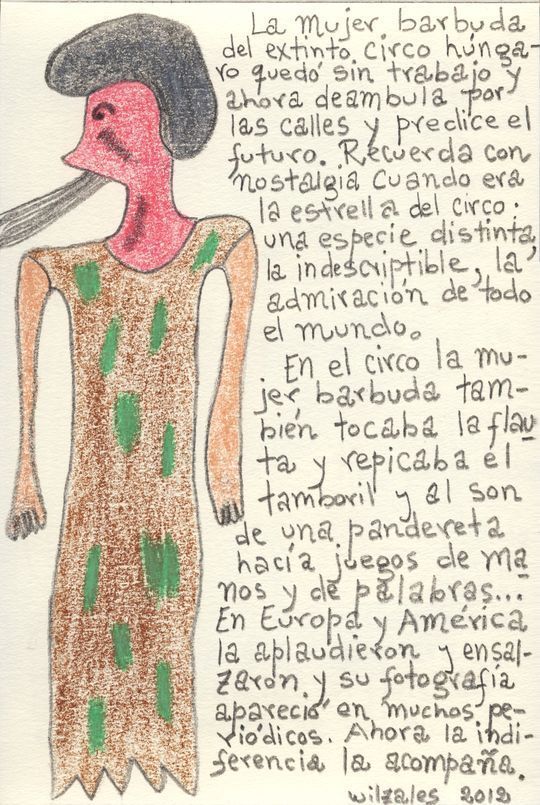 La mujer barbuda
del extinto circo húnga-
ro quedó sin trabajo y
ahora deambula por
las calles y predice el
futuro. Recuerda con
nostalgia cuando era
la estrella del circo:
una especie distinta,
la indescriptible, la
admiración de todo
el mundo.
En el circo la mu-
jer barbuda tam-
bién tocaba la flau-
ta y repicaba el
tamboril y al son
de una pandereta
hacía juegos de ma-
nos y de palabras...
En Europa y América
la aplaudieron y ensal-
zaron y su fotografía
apareció en muchos pe-
riódicos. Ahora la indi-
ferencia la acompaña.
wilzales 2012